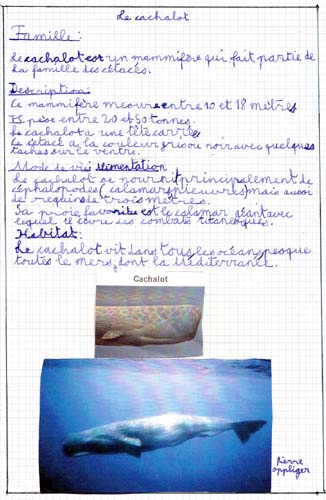 Le cachalot
Famille :
Le cachalot est un mammifère qui fait partie de
la famille des cétacés.
Description:
Ce mammifère mesure entre 10 et 18 mètres
Il pèse entre 20 et 50 tonnes.
Le cachalot a une tête carrée
Ce cétacé a la couleur gris ou noir avec quelques
taches sur le ventre.
Mode de vie: alimentation
Le cachalot se nourrit principalement de
céphalopodes (calamars, pieuvres) mais aussi
de requins de trois mètres.
Sa proie favorite est le calamar géant avec
lequel il livre des combats titanesques.
Habitat:
Le cachalot vit dans tous les océans presque
toutes le mers, dont la Méditerranée.
Cachalot
Pierre
Oppliger